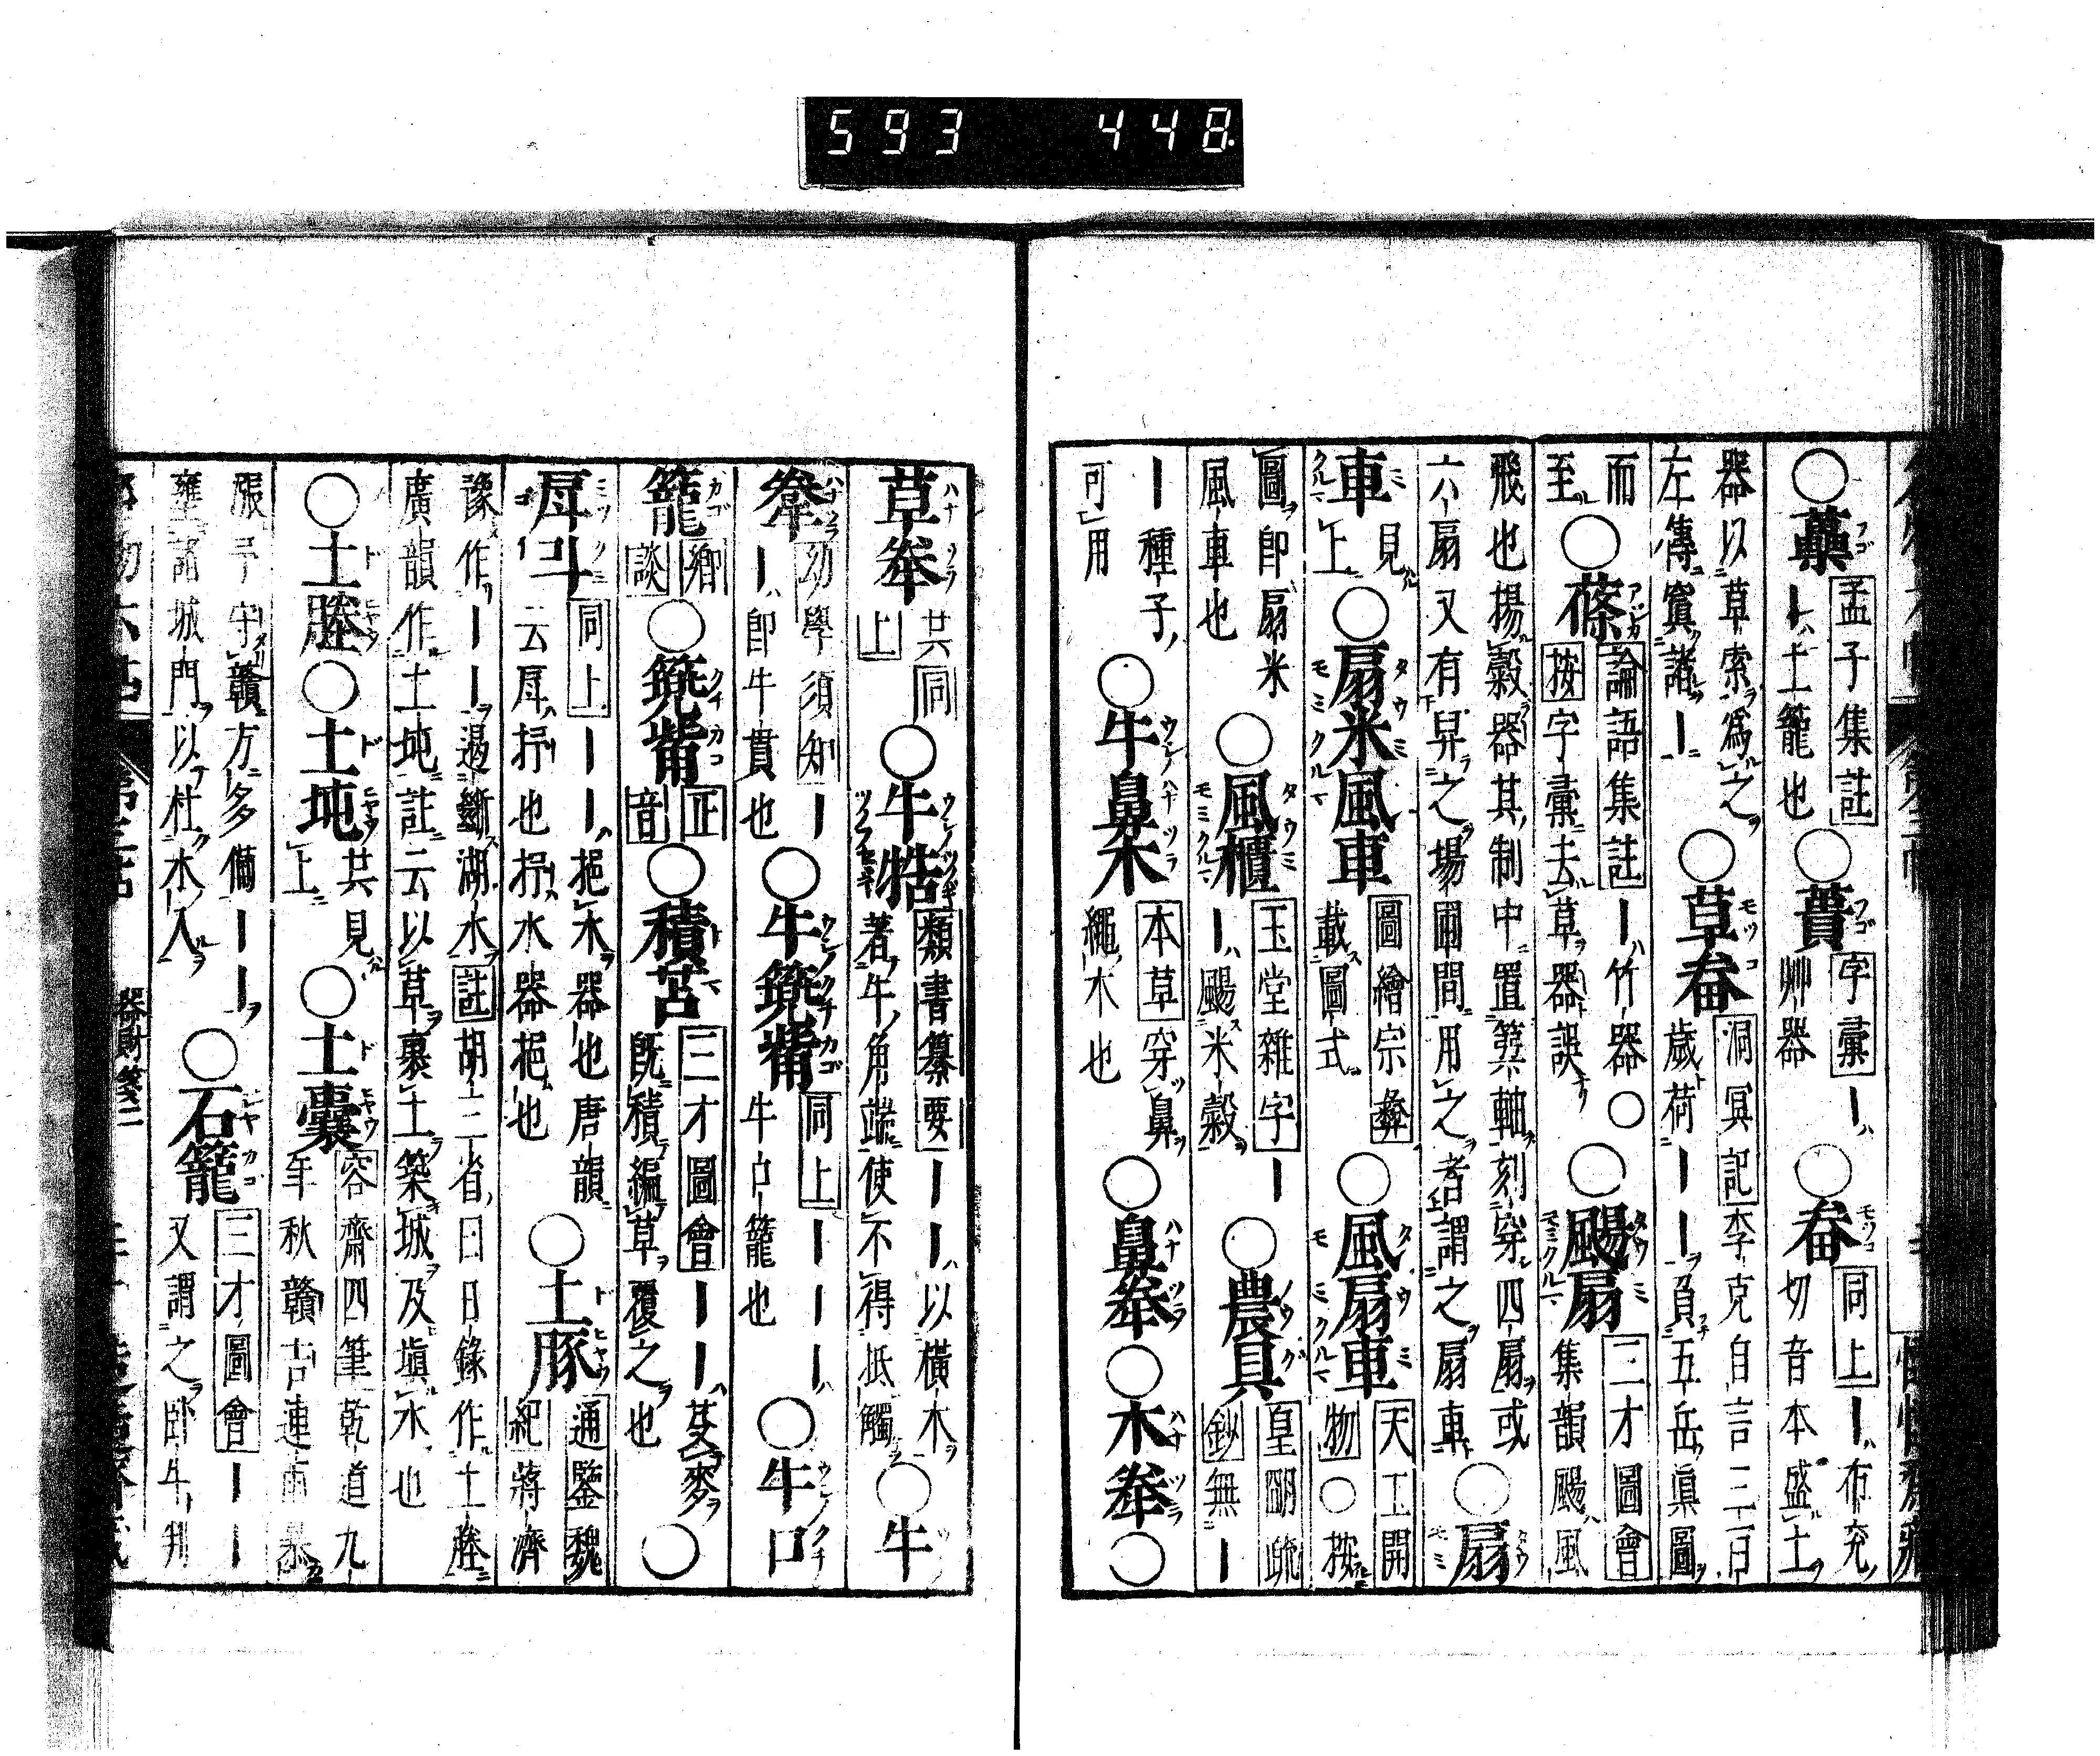 593 448
○虆 孟子集註 ｜ハ土籠也 ○蕢 字彙 ｜ハ艸器 ○畚 同上 ｜ハ布充切音本盛土
器以草索爲之 左傳寘諸｜ ○草畚 洞冥記 李克自言三百歲荷｜｜負五岳眞圖
而至 ○蓧 論語集註 ｜ハ竹器○ 按字彙去草器誤 ○颺扇 三才圖會 集韻颺風
飛也揚穀器其制中置簨軸刻穿四扇或六扇又有舁之場圃間用之者謂之扇車 ○扇
車 見上 ○扇米風車 圖繪宗彝 載圖式 ○風扇車 天工開物 ○按
圖即扇米風車也 ○風櫃 玉堂雜字 ｜ハ颺米穀｜ ○農具 皇明疏鈔 無｜
｜種子可用 ○牛鼻木 本草 穿鼻繩木也 ○鼻桊 ○木桊 ○
草桊 共同上 ○牛牿 類書纂要 ｜｜ハ以橫木著牛角端使不得抵觸 ○牛
桊 幼學須知 ｜｜ハ即牛貫也 ○牛篼觜 同上 ｜｜｜ハ牛口籠也 ○牛口
籠 鄉談 ○篼觜 正音 ○積苫 三才圖會 ｜｜ハ芟麥既積編草覆之也 ○
戽斗 同上 ｜｜ハ挹水器也唐韻云戽抒也抒水器挹也 ○土豚 通鑒魏紀 蔣濟
豫作｜｜遏斷湖水 註 胡三省曰目錄作土塍廣韻作土坉註云以草裹土築城及塡水也
○土塍 ○土坉 共見上 ○土囊 容齋四筆 乾道九年秋贛吉連雨暴
漲予守贛方多備｜｜壅諸城門以杜水入 ○石籠 三才圖會 ｜｜又謂之臥牛判
器財箋二